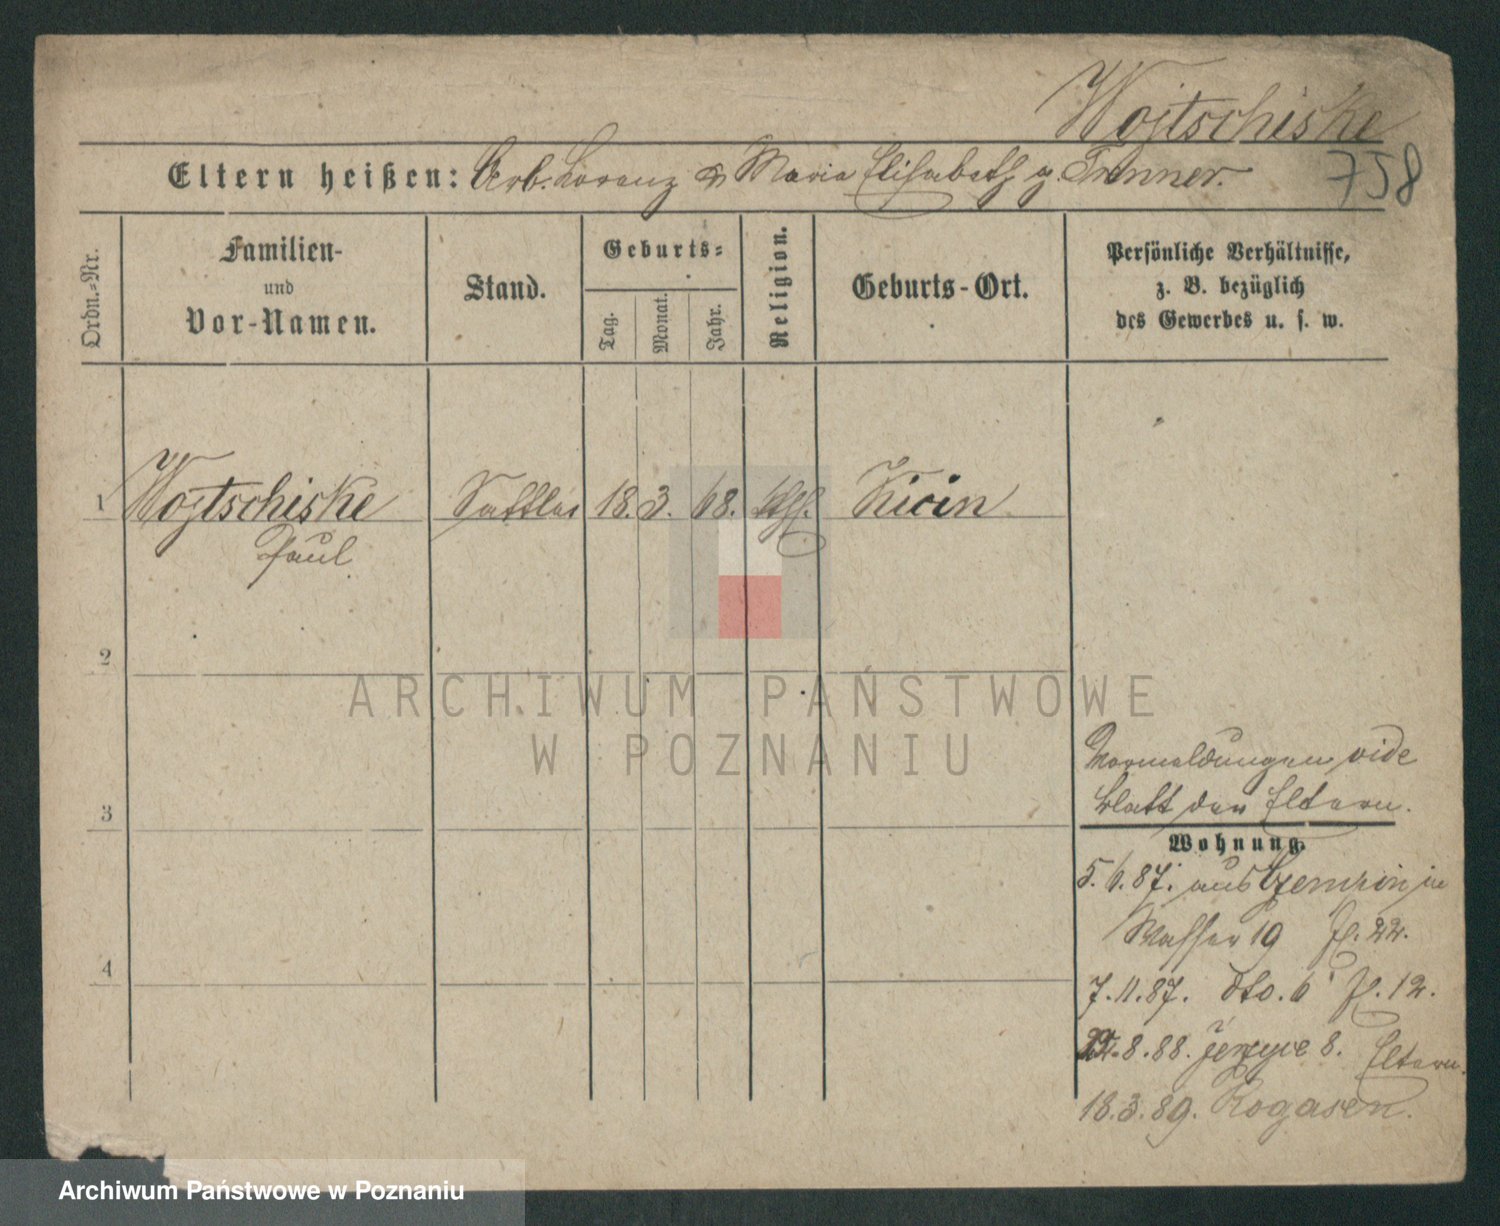 Wojtschiske
758
Eltern heißen: Arb. Lorenz & Maria Elisabeth g. Trenner.
Ordn.-Nr.
Familien-
und
Vor-Namen.
Stand.
Geburts-
Tag.
Monat.
Jahr.
Religion.
Geburts-Ort.
Persönliche Verhältnisse,
z. B. bezüglich
des Gewerbes u. s. w.
1 Wojtschiske Sattler 18. 3. 68. kth. Kicin
Paul
2
3
4
Vormeldungen vide
Blatt der Eltern.
Wohnung.
5. 6. 87. aus Czempin in
Wasser 19 Fl. 22.
7. 11. 87. dto. 6 Fl. 12.
8. 88. Jerzyce 8. Eltern.
18. 3. 89. Rogasen.
ARCHIWUM PAŃSTWOWE
W POZNANIU
Archiwum Państwowe w Poznaniu